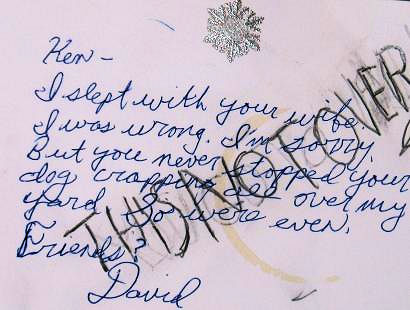 Ken-
I slept with your wife
I was wrong. I'm sorry.
But you never stopped your
dog crapping all over my
yard So were even.
Friends?
David
THIS NOT OVER